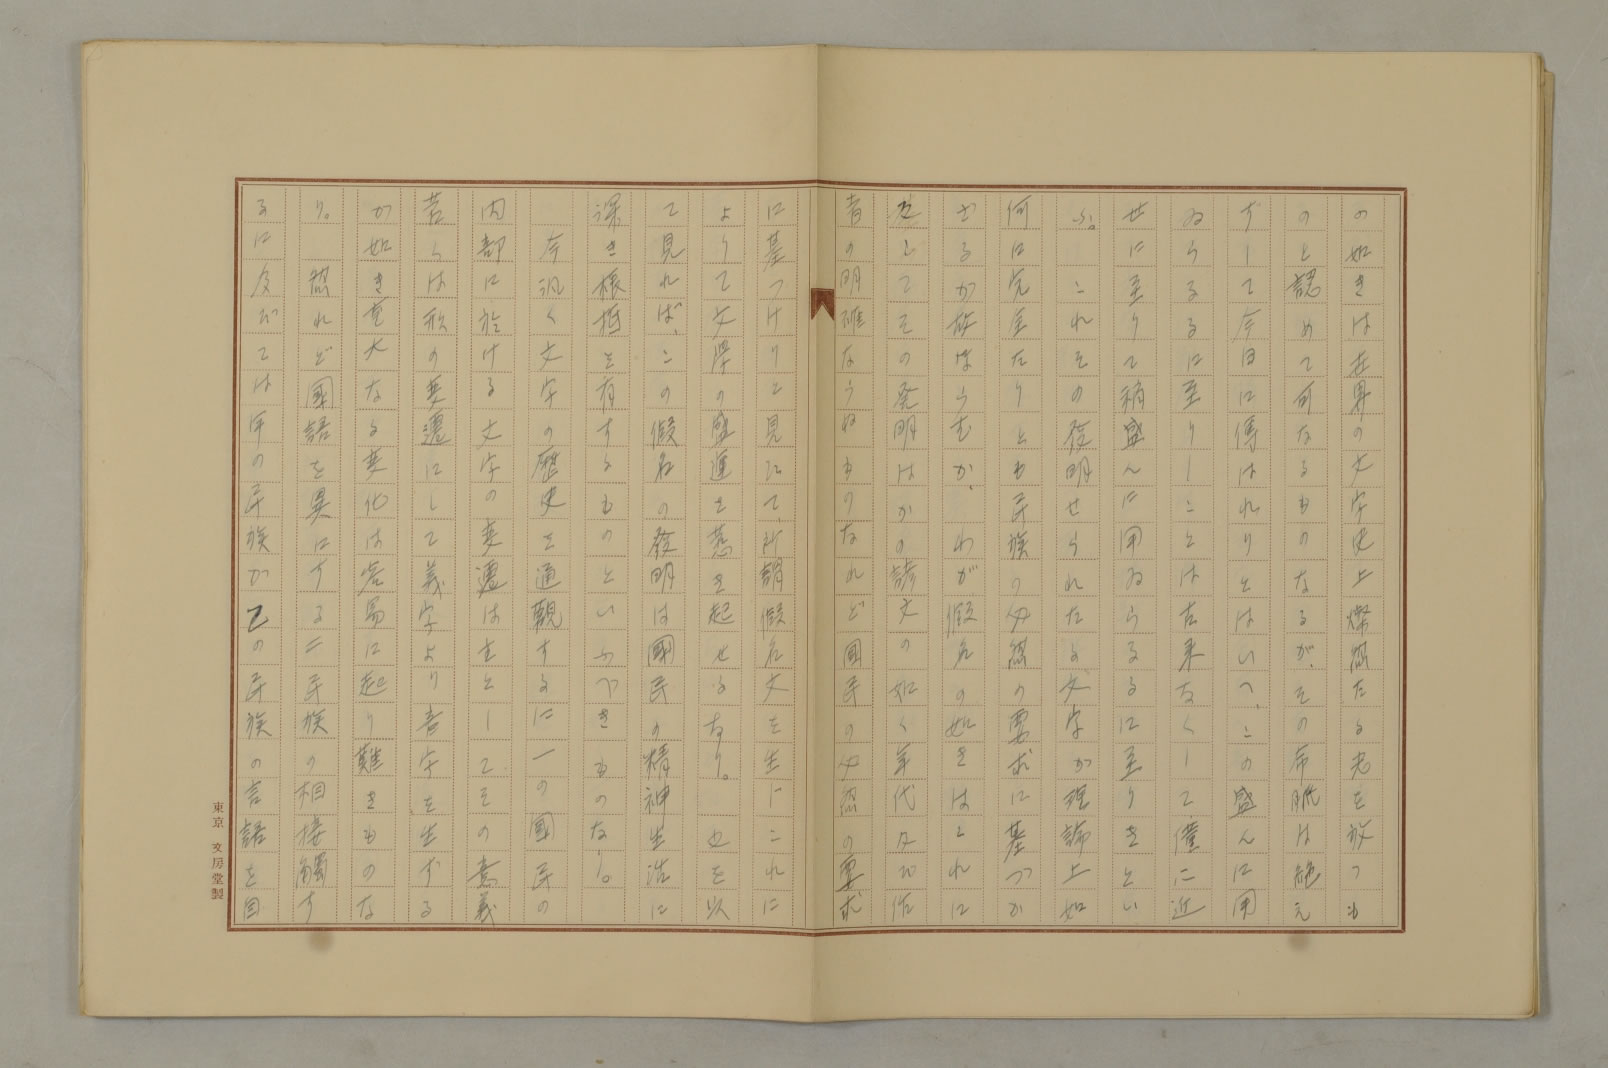 の如きは世界の文字史上燦然たる光を放つも
のと認めて可なるものなるが、その命脈は絶え
ずして今日に傳はれりとはいへ、この盛んに用
ゐらるるに至りしことは古来なくして僅に近
世に至りて稍盛んに用ゐらるるに至りきとい
ふ。これその發明せられたる文字が理論上如
何に完全たりとも民族の必然の要求に基づか
ざるが故ならむか。わが假名の如きはこれに
反してその発明はかの諺文の如く年代及び作
者の明確ならぬものなれど國民の必然の要求
に基づけりと見えて、所謂假名文を生じこれに
よりて文学の盛運を惹き起せるなり。之を以
て見れば、この假名の發明は國民の精神生活に
深き根柢を有するものといふべきものなり。
今汎く文字の歴史を通観するに一の國民の
内部に於ける文字の変遷は主としてその意義
若くは形の変遷にして義字より音字を生ずる
が如き重大なる変化は容易に起り難きものな
り。然れど國語を異にする二民族の相接觸す
るに及びては甲の民族が乙の民族の言語を国
東京 文房堂製